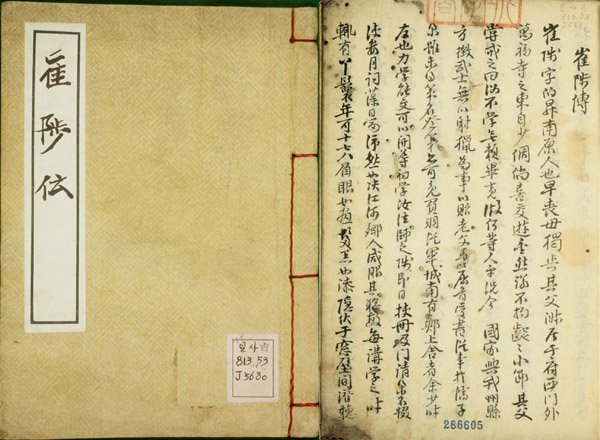 崔陟伝
일사古
813.53
J568c
崔陟傳
崔陟字伯昇南原人也早喪母獨與其父淑居于府西門外
萬福寺之東自少倜儻喜交遊重然諾不拘齪々小節其父
嘗戒之曰汝不學無賴畢竟做何等人乎況今 國家興戎州縣
方徵武士無以射獵為事以貽老父憂屈首受書從事於擧子
業雖未得策名登第亦可免負羽從軍城南有鄭上舍者余少時
友也力學能文可以開導初學汝往師之陟即日挾冊及門請業不輟
數月詞藻日富沛然如決江河鄉人咸服其聰敏每講學之時
輒有丫鬟年可十七八眉眼如畫髮黑如漆隱伏于窓壁間潛聽
286605